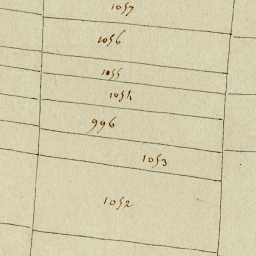 1057
1056
1055
1054
996
1053
1052